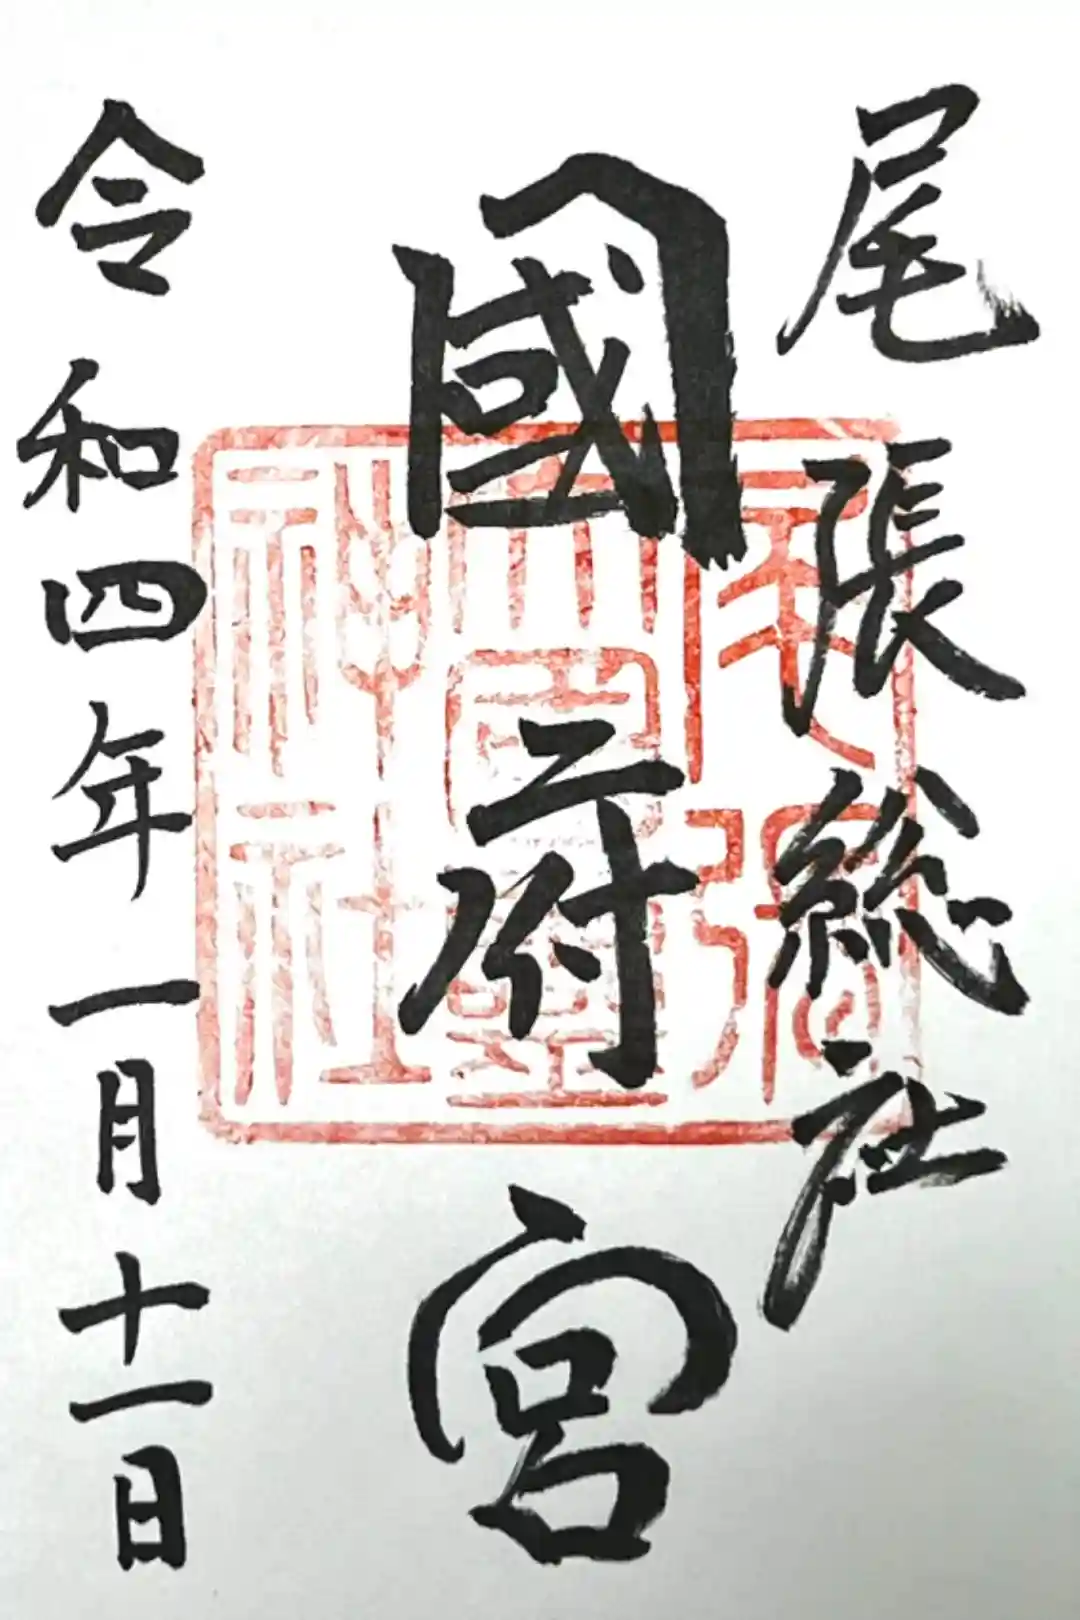 尾張総社
國府宮
令和四年一月十一日
尾張
大國霊
神社